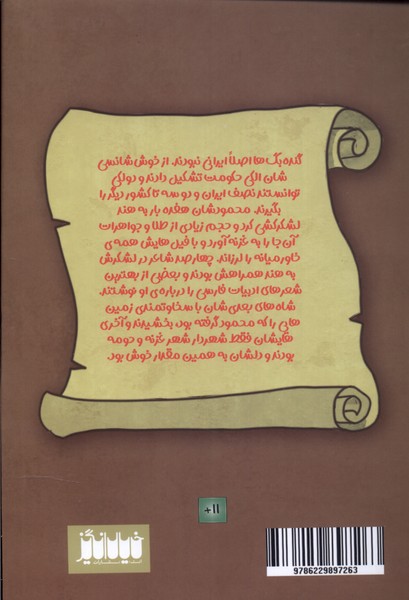 گنده‌بگ‌ها اصلاً ایرانی نبودند. از خوش شانسی
شان الکی حکومت تشکیل دادند و دولکی
توانستند نصف ایران و دو سه تا کشور دیگر را
بگیرند. محمودشان هفده بار به هند
لشکرکشی کرد و حجم زیادی از طلا و جواهرات
آن جا را به غزنه آورد و با فیل هایش همه‌ی
خاورمیانه را لرزاند. چهارصد شاعر در لشکرش
به هند همراهش بودند و بعضی از بهترین
شعرهای ادبیات فارسی را درباره‌ی او نوشتند.
شاه‌های بعدی‌شان با سخاوتمندی زمین
هایی را که محمود گرفته بود، بخشیدند و آخری
هایشان فقط شهردار شهر غزنه و حومه
بودند و دلشان به همین مقدار خوش بود.
+۱۱
خیال‌انگیز
انتشارات
9786229897263